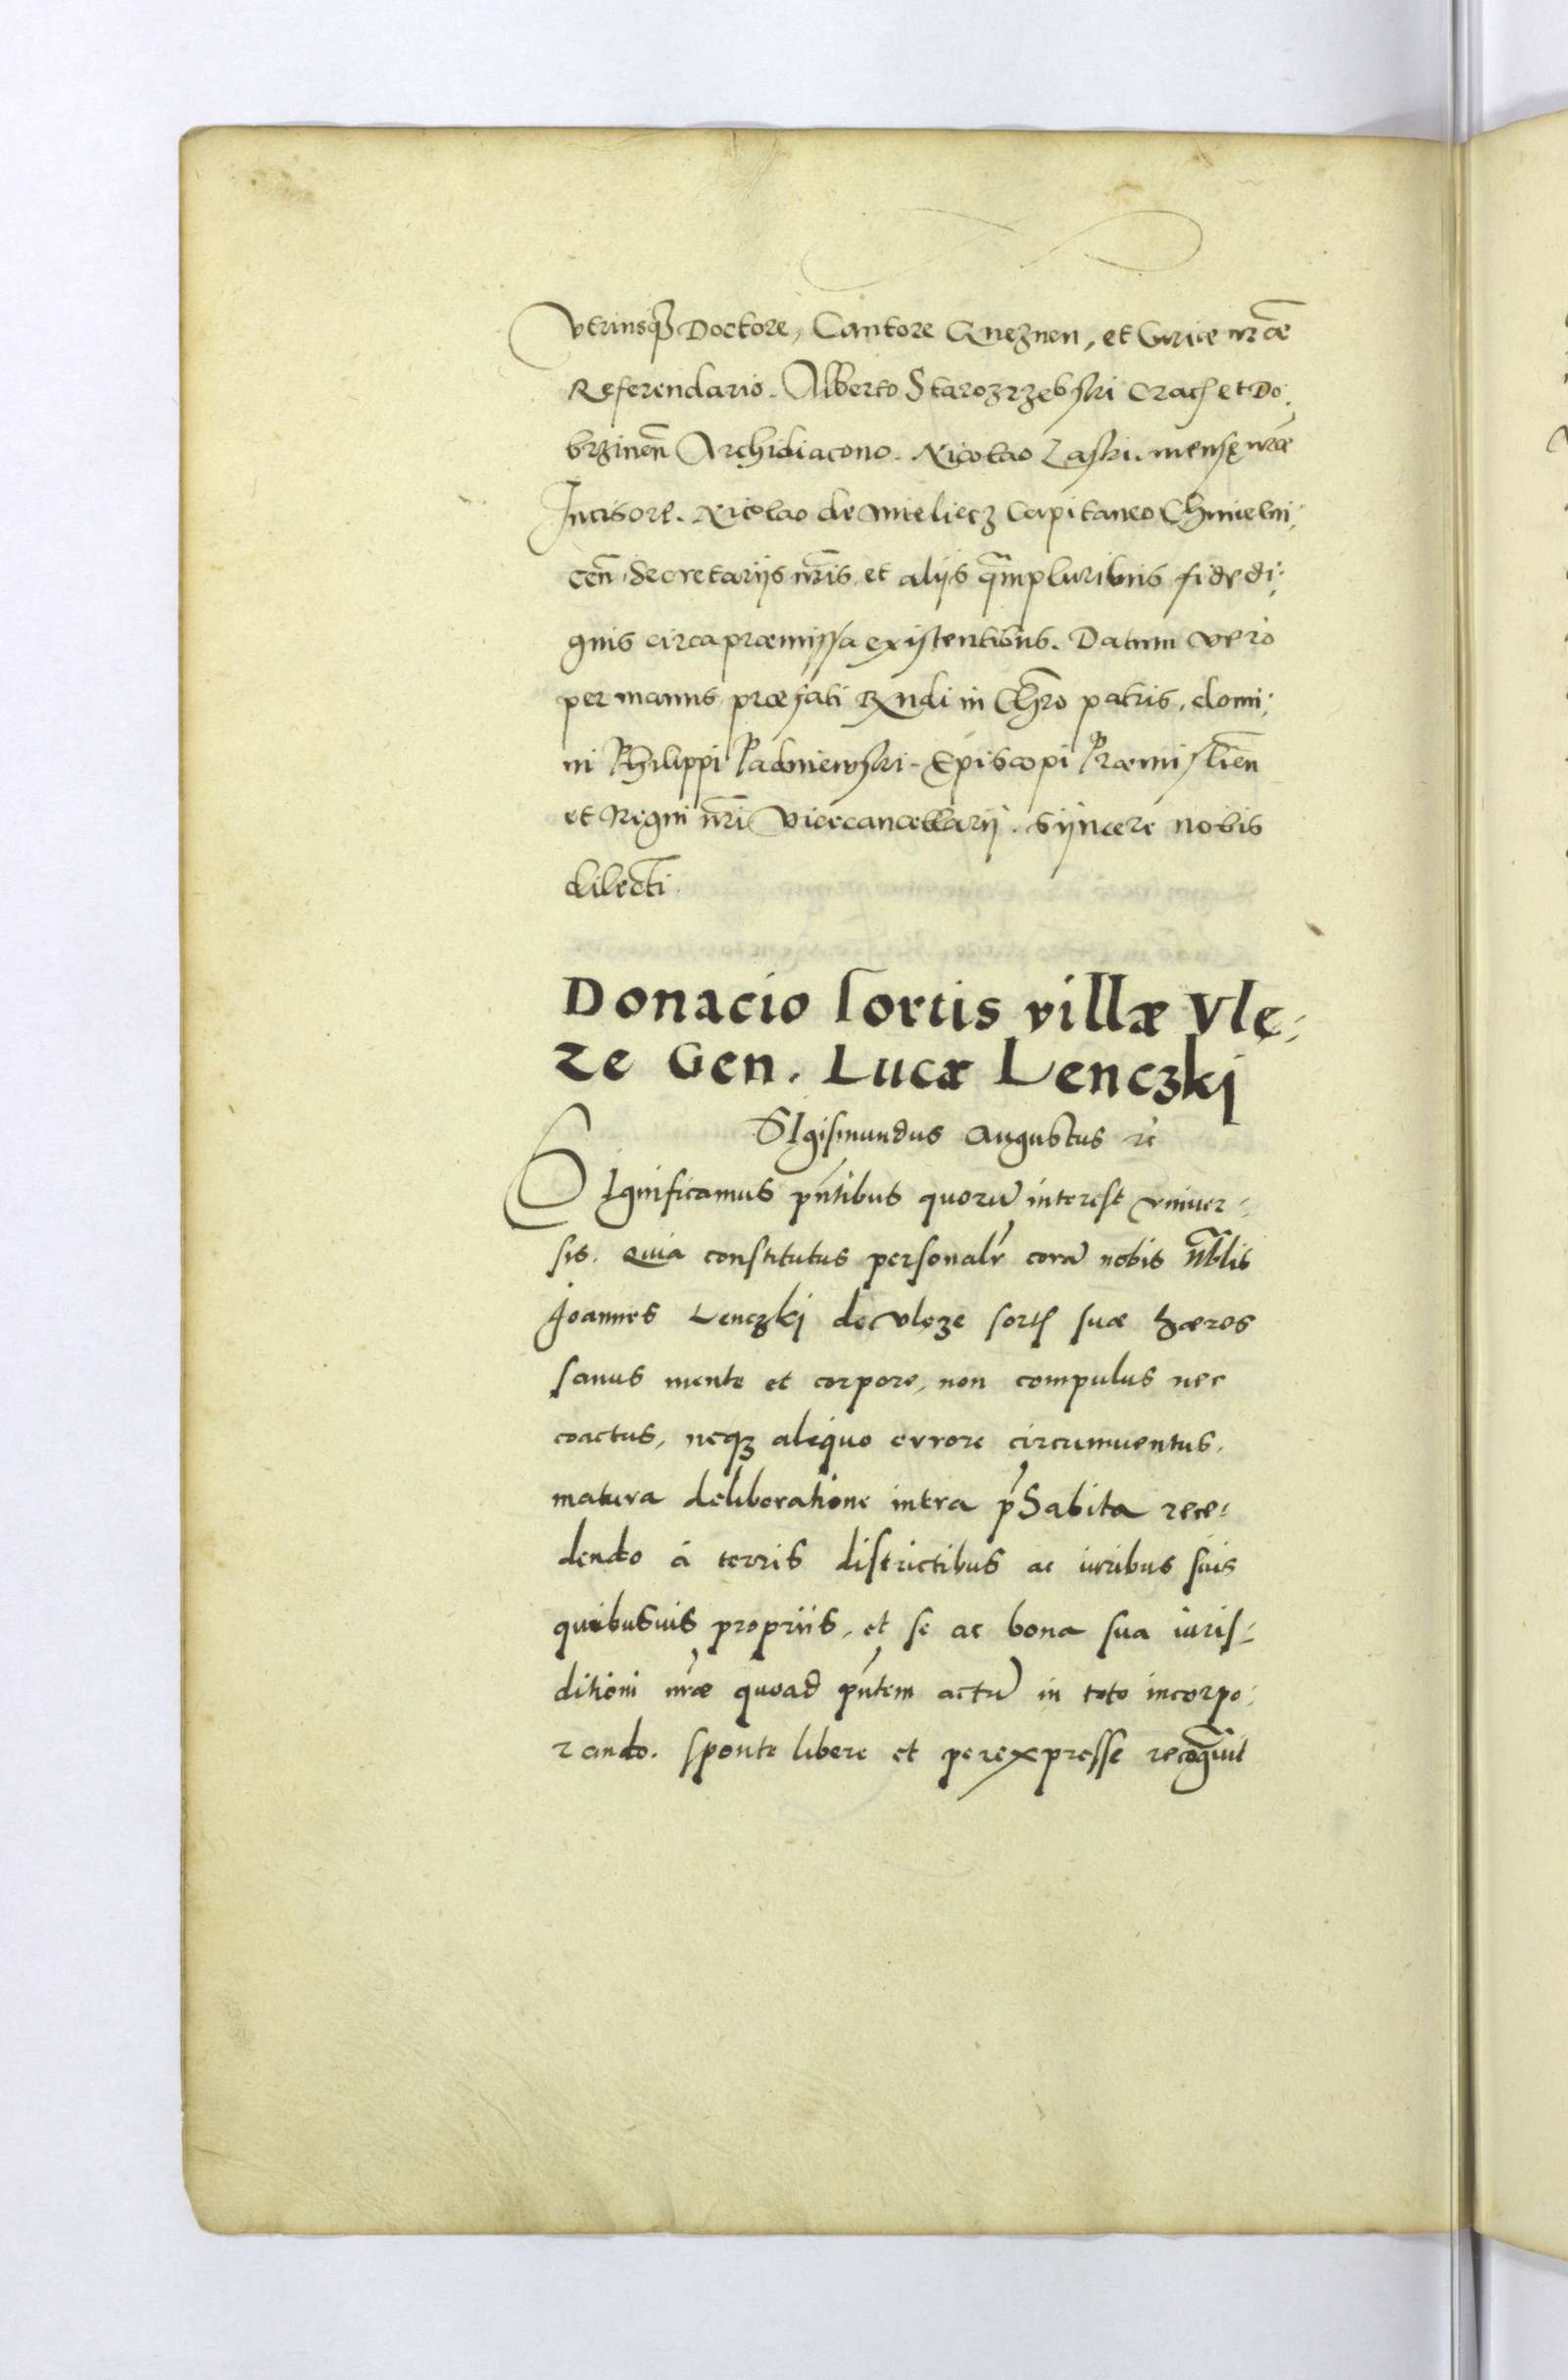 Vtriusq̃ Doctore, Cantore Gneznen, et Curiæ nr̃æ
Referendario. Alberto Starozrzebski Crac̃ et Do:
brzinen̄ Archidiacono. Nicolao Laski. mensę nr̃æ
Incisore. Nicolao de Mieliecz Capitaneo Chmielni:
cen̄. Secretariis nr̃is et aliis q̃mpluribus fidedi:
gnis circa præmissa existentibus. Datum vero
per manus præfati Rndi in Chr̃o patris, domi:
ni Philippi Padniewski. Episcopi Præmislien̄
et Regni nr̃i Vicecancellarii. Syncere nobis
dilecti.
Donacio sortis villæ Vlę:
ze Gen. Lucæ Lenczkj
SIgismundus Augustus rc̃
SIgnificamus pñtibus quorũ interest vniuer:
sis. Quia constitutus personalr̃ corã nobis Nb̃lis
Joannes Lenczkj de Vlęze sort̃ suæ hæres
sanus mente et corpore, non compulus nec
coactus, neqz aliquo errore circumuentus.
matura deliberatione intra p̃habita rece:
dendo á terris districtibus ac iuribus suis
quibusuis propriis, et se ac bona sua iuris:
ditioni nr̃æ quoad pñtem actũ in toto incorpo:
rando. sponte libere et perexpresse recog̃uit